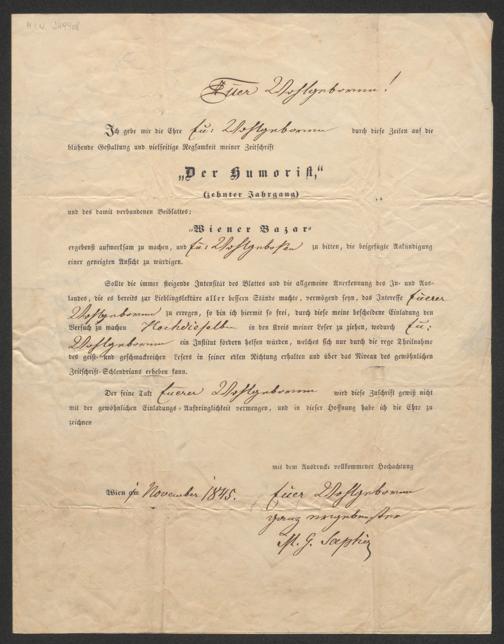 Euer Wohlgeboren!
Ich gebe mir die Ehre Eu: Wohlgeboren durch diese Zeilen auf die
blühende Gestaltung und vielseitige Regsamkeit meiner Zeitschrift
„Der Humorist,“
(zehnter Jahrgang)
und des damit verbundenen Beiblattes:
„Wiener Bazar“
ergebenst aufmerksam zu machen, und Eu: Wohlgeboren zu bitten, die beigefügte Ankündigung
einer geneigten Ansicht zu würdigen.
Sollte die immer steigende Intensität des Blattes und die allgemeine Anerkennung des In- und Aus-
landes, die es bereits zur Lieblingslektüre aller bessern Stände machte, vermögend seyn, das Interesse Euerer
Wohlgeboren zu erregen, so bin ich hiermit so frei, durch diese meine bescheidene Einladung den
Versuch zu machen Hochdieselben in den Kreis meiner Leser zu ziehen, wodurch Eu:
Wohlgeboren ein Institut fördern helfen würden, welches sich nur durch die rege Theilnahme
des geist- und geschmackreichen Lesers in seiner edlen Richtung erhalten und über das Niveau des gewöhnlichen
Zeitschrift-Schlendrians erheben kann.
Der feine Takt Euerer Wohlgeboren wird diese Zuschrift gewiß nicht
mit der gewöhnlichen Einladungs-Aufdringlichkeit vermengen, und in dieser Hoffnung habe ich die Ehre zu
zeichnen
mit dem Ausdrucke vollkommener Hochachtung
Wien im November 1845.
Euer Wohlgeboren
ganz ergebenster
M. G. Saphir